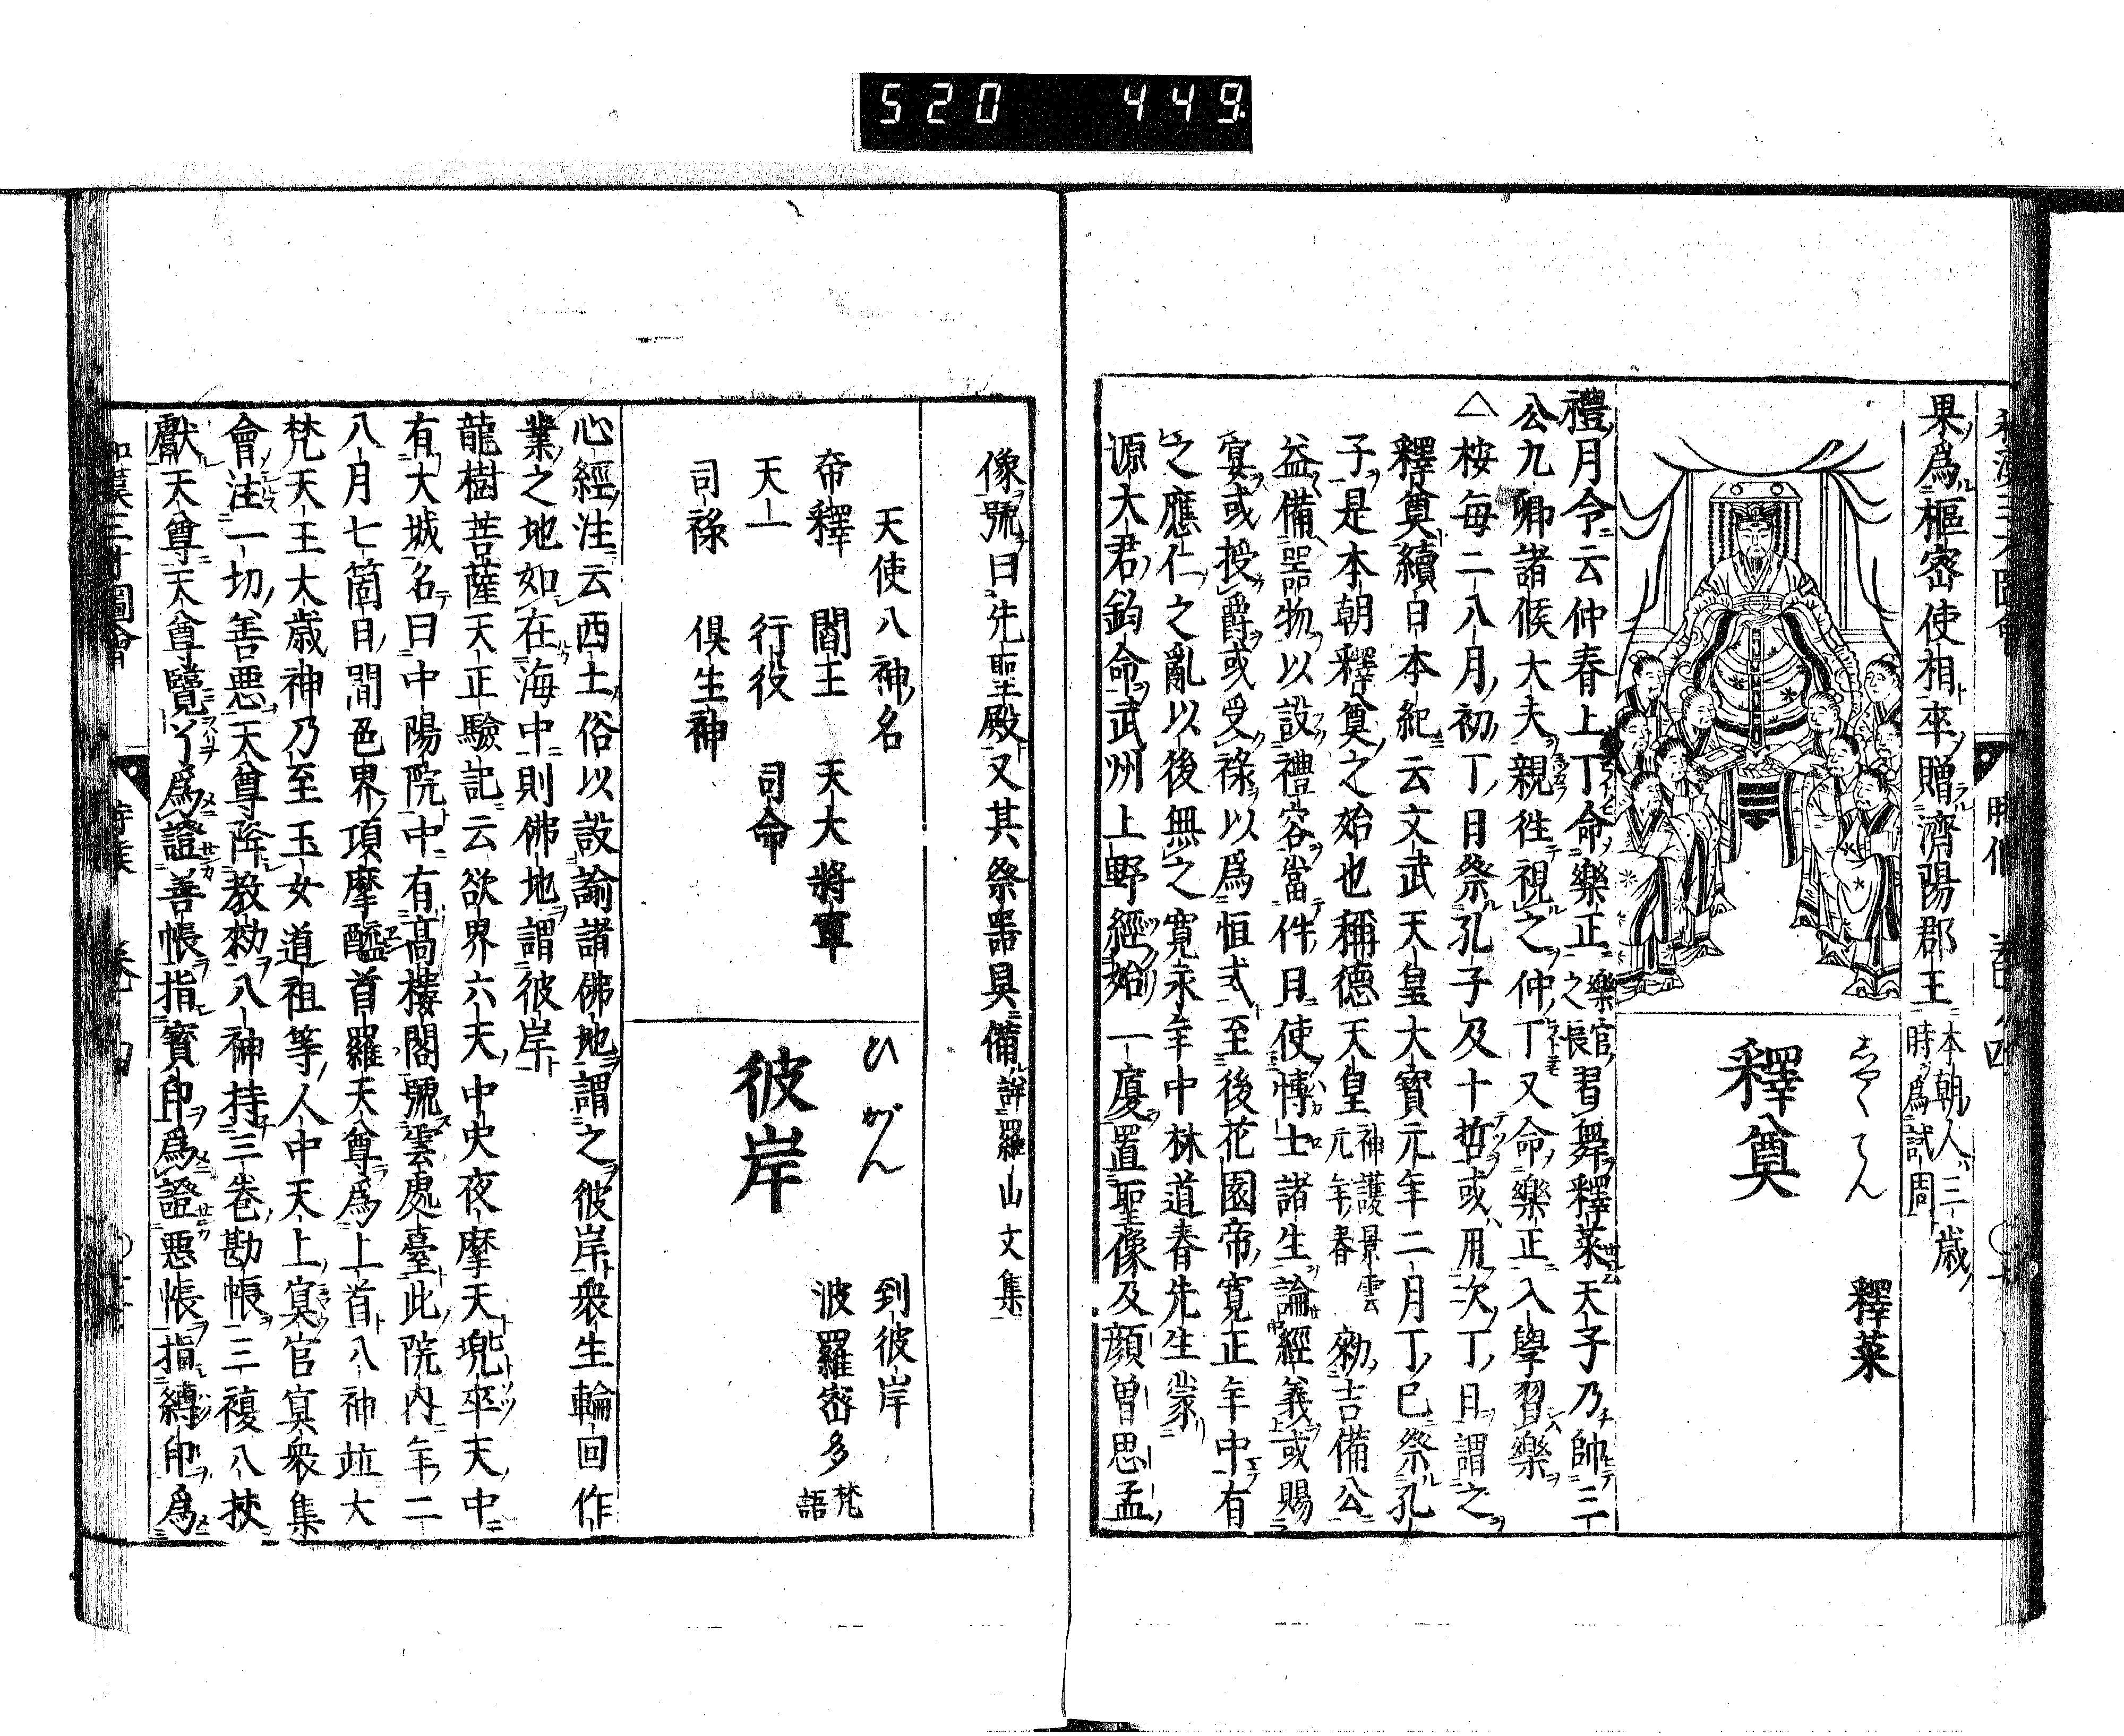 520 449
果爲樞密使相卒贈濟陽郡王 本朝人三歳
時爲試周
しやくてん
釋菜
釋奠
禮月令云仲春上丁命樂正 樂官
之長 習舞釋菜天子乃帥三
公九卿諸候大夫親徃視之仲丁又命樂正入學習樂
△按毎二八月初丁日祭孔子及十哲或用次丁日謂之
釋奠續日本紀云文武天皇大寳元年二月丁巳祭孔
子是本朝釋奠之始也稱德天皇 神護景雲
元年春 勑吉備公
益備器物以設禮容當件日使博士諸生論經義或賜
宴或授爵或受祿以爲恒式至後花園帝寛正年中有
之應仁之亂以後無之寛永年中林道春先生蒙
源大君鈞命武州上野經始一厦置聖像及顔曽思孟
像號曰先聖殿又其祭器具備 詳羅山文集
天使八神名
帝釋 閻王 天大將軍
天一 行役 司命
司祿 倶生神
ひがん
到彼岸
彼岸
波羅密多 梵
語
心經注云西土俗以設諭諸佛地謂之彼岸衆生輪回作
業之地如在海中則佛地謂彼岸
龍樹菩薩天正驗記云欲界六天中央夜摩天兜率天中
有大城名曰中陽院中有髙樓閣號雲處臺此院内年二
八月七箇日間色界頂摩醯首羅天尊爲上首八神竝大
梵天王大歳神乃至玉女道祖等人中天上冥官冥衆集
會注一切善悪天尊降教勑八神持三巻勘帳三複八挍
獻天尊天尊覽了爲證善帳指寳印爲證悪帳指縛印爲